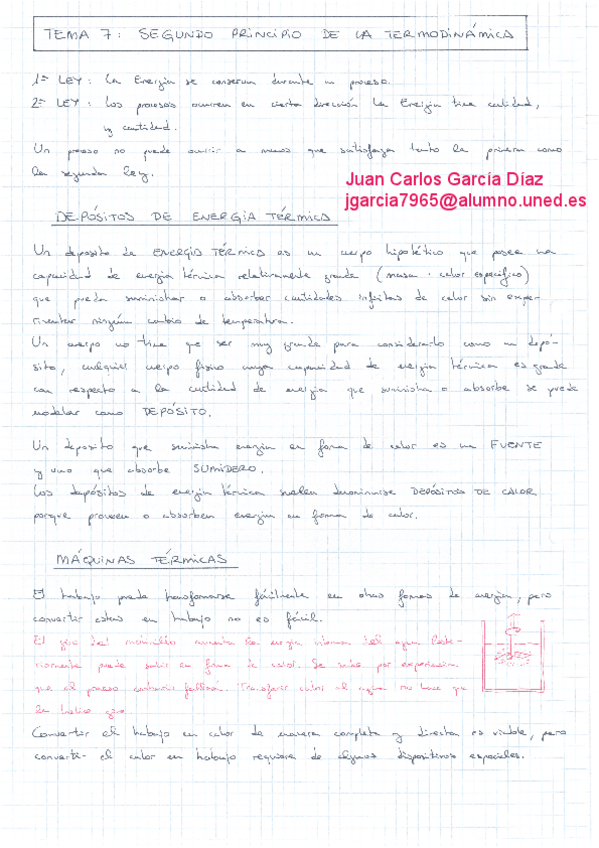 TEMA 7: SEGUNDO PRINCIPIO DE LA TERMODINÁMICA
1ª LEY: La Energia se conserva durante un proceso.
2ª LEY: Los procesos ocurren en cierta dirección La Energia tiene calidad,
y cantidad.
Un proceso no puede ocurrir a menos que satisfaga tanto la primera como
la segunda ley.
Juan Carlos García Díaz
jgarcia7965@alumno.uned.es
DEPÓSITOS DE ENERGIA TÉRMICA
Un deposito de ENERGIA TÉRMICA es un cuerpo hipotético que posee una
capacidad de energia térmica relativamente grande (masa · calor especifico)
que pueda suministrar o absorber cantidades infinitas de calor sin expe-
rimentar ningún cambio de temperatura.
Un cuerpo no tiene que ser muy grande para considerarlo como un depó-
sito, cualquier cuerpo fisico cuya capacidad de energia térmica es grande
con respecto a la cantidad de energia que suministra o absorbe se puede
modelar como DEPÓSITO.
Un deposito que suministra energia en forma de calor es una FUENTE
y uno que absorbe SUMIDERO.
Los depósitos de energia térmica suelen denominarse DEPÓSITOS DE CALOR
porque proveen o absorben energia en forma de calor.
MÁQUINAS TÉRMICAS
El trabajo puede transformarse fácilmente en otras formas de energia, pero
convertir estas en trabajo no es fácil.
El giro del molinillo aumenta la energia interna del agua. Poste-
riormente puede salir en forma de calor. Se sabe por experiencia
que el proceso contrario fallará. Transferir calor al agua no hace que
la hélice gire.
Convertir el trabajo en calor de manera completa y directa es viable, pero
convertir el calor en trabajo requiere de algunos dispositivos especiales.